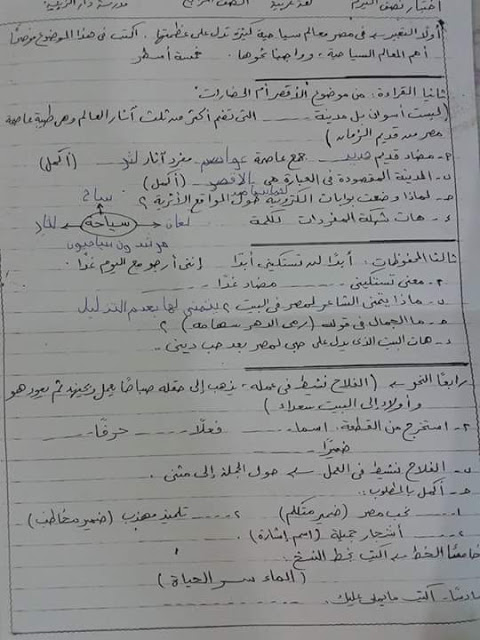 اختبار نصف الترم لغة عربية الصف الرابع مدرسة
أولاً التعبير ← فى مصر معالم سياحية كثيرة تدل على عظمتها. اكتب فى هذا الموضوع موضحاً
أهم المعالم السياحية، وواجبنا نحوها. خمسة أسطر
ثانيا القراءة: من موضوع الأقصر أم الحضارات:
(ليست أسوان بل مدينة ...... التى تضم أكثر من ثلث آثار العالم وهى طيبة عاصمة
مصر من قديم الزمان)
٢- مضاد قديم جديد جمع عاصمة عواصم مفرد آثار أثر (أكمل)
ب- المدينة المقصودة فى العبارة هى الأقصر (أكمل)
ج- لماذا وضعت بوابات الكترونية حول المواقع الأثرية ؟
سياح
د- هات شبكة المفردات لكلمة سياحة
مرشدون سياحيون
ثالثا المحفوظات: أبدًا لن تستكينى أبدًا إننى أرجو مع اليوم غدًا
٢- معنى تستكينى ...... مضاد غدا ......
ب- ماذا يتمنى الشاعر لمصر فى البيت ؟ يتمنى لها بعدم التذليل
ج- ما الجمال فى قوله (رمى الدهر سهامه) ؟
د- هات البيت الذى يدل على حبى لمصر بعد حب دينى ..
رابعًا النحو ← (الفلاح نشيط فى عمله، يذهب إلى حقله صباحًا يعمل ويجتهد ثم يعود هو
وأولاده إلى البيت سعداء)
٢- استخرج من القطعة: اسما ...... فعلًا ...... حرفًا ......
ضميرًا ......
ب- الفلاح نشيط فى العمل ← حول الجملة إلى مثنى.
ج- أكمل بالمطلوب:
١- ...... نحب مصر (ضمير متكلم) ٢- ...... تلميذ مهذب (ضمير مخاطب)
٣- ...... أشجار جميلة (اسم إشارة).
خامسًا الخط ← اكتب بخط النسخ:
(الماء سر الحياة)
سادسًا- اكتب ما يملى عليك. ......